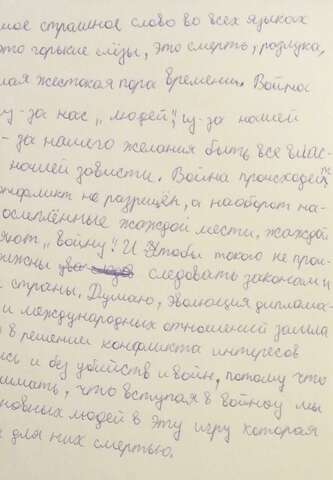 мое страшное слово во всех языках
это горькие слёзы, это смерть, разлука,
мая жестокая пора времени. Война
из-за нас „людей", из-за нашей
- за нашего желания быть все влас-
нашей зависти. Война происходет
конфликт не разришён, а наоборот на-
ослеплённые жаждой мести, жаждой
яют „войну". И чтобы такого не прои-
лжны следовать законам и
страны. Думаю, эволюция диплома-
и международных отношений зашла
в решении конфликта интересов
ись и без убийств и войн, потому что
имать, что вступая в войну мы
новных людей в эту игру которая
для них смертью.